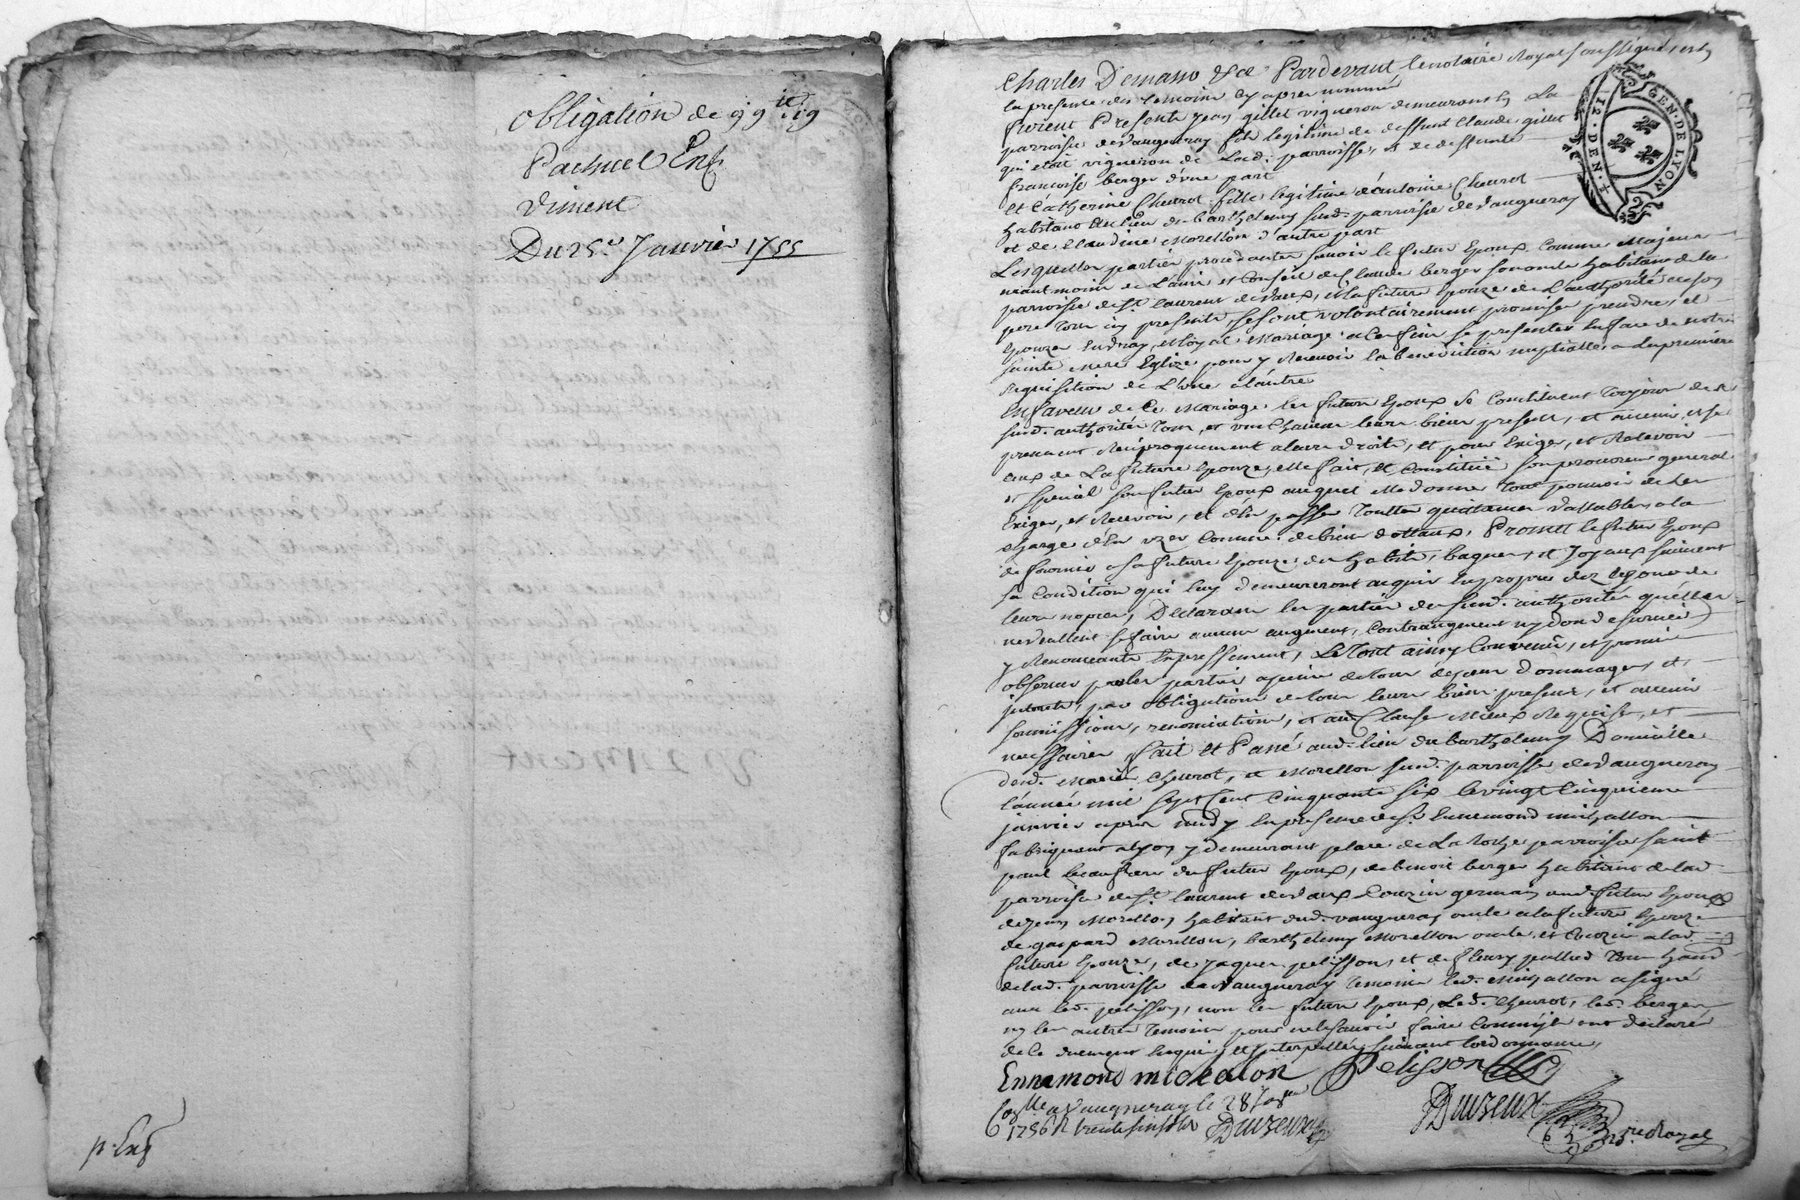 obligation de 99ᵗᵗ 19
Pachuel Enf.
Viment
Du 25e Janvier 1755
p. Enf
GEN. DE LYON
12 DEN.
Charles D'emano &ce Pardevant le notaire Royal soussigné, et en
la presence des temoins cy apres nommé
furent Presents jean gillet vigneron demeurant en La
parroisse de Vaugneray fils legitime de deffunt Claude gillet
qui etoit vigneron de Lad. parroisse, & de deffunte
francoise berger d'une part
Et Catherine Cheurot fille legitime d'antoine Cheurot
habitant au lieu du barthelemy susd. parroisse de Vaugneray
et de Claudine Morellon d'autre part
Lesquelles parties procedantes savoir le futur Epoux comme Majeur
neantmoins de L'avis et conseil de Claude berger son oncle habitant de la
parroisse de St. laurent de Vaux, et la future Epouze de L'authorité de son
pere tous cy presents, se sont volontairement promises prendre, et
Epouzer En vray, et loyal Mariage a Ces fins se presenter En face de notre
sainte mere Eglize pour y Recevoir la benediction nuptialle a la premiere
Requisition de L'une a l'autre
En faveur de Ce Mariage les futurs Epoux se Constituent toujours de
susd. authorités tous, et un chacun leurs biens presents, et avenir, et se
prennent Reciproquement a leurs droits, et pour Exiger, et Recevoir
ceux de La future Epouze, elle fait, et Constitue son procureur general
et special son futur Epoux auquel elle donne tout pouvoir de les
Exiger, et Recevoir, et d'En passer touttes quittances vallables a la
charge d'En uzer Comme de biens dottaux, Promet le futur Epoux
de fournir a sa future Epouze des habits, bagues, et Joyaux suivant
sa Condition qui luy demeureront acquis En propres dez le jour de
leurs nopces, Declarans les parties de susd. authorités qu'elles
ne veullent se faire aucun augment, Contraugment ny don de survie
y Renonceants Expressement, Le Tout ainsy Convenu, et promis
observer par les parties a peine de tous depens dommages, et
interets, par obligations de tous leurs biens presents, et avenir
soumissions, renonciations, et aux Clauses mieux Requises, et
necessaires fait et Passé aud. lieu du barthelemy Domicille
desd. mariés Cheurot, et Morellon susd. parroisse de Vaugneray
l'année mil sept Cent Cinquante six le vingt Cinquieme
janvier apres midy En presence de Sr. Ennemond michallon
fabriquant a lyon y demeurant place de La parroisse saint
paul beaufrere du futur Epoux, de benoit berger habitant de lad.
parroisse de St. laurent de Vaux Couzin germain aud. futur Epoux
de jean Morellon habitant dud. Vaugneray oncle a la future Epouze
de gaspard Morellon, barthelemy Morellon oncle, et Couzin a lad.
future Epouze, de jaques pelisson, et de fleury tous hab.
de lad. parroisse de Vaugneray temoins led. Michallon a signé
avec led. pelisson, non les futurs Epoux, Led. Cheurot, led. berger
ny les autres temoins pour ne le savoir faire Comm'ils ont declarés
de Ce duement Enquis, et Interpellés suivant l'ordonnance,
Ennemond michalon Pelisson
Collé a Vaugneray le 28 Janvier
1756 R trente six sols Duvzeux
Duvzeux
nre. Royal